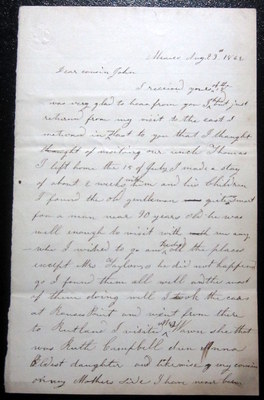 Aug 3rd 1862
Dear cousin John
I received yours of the
was very glad to hear from you I had just
returned from my visit to the east I
to you that I thought
thought of visiting our uncle Thomas
I left home the 15 of July I made a stay
of about 2 weeks him and his Children
I found the old gentleman quite smart
for a man near 90 years old he was
well enough to visit with me any
where I wished to go and all the places
except Mrs he did not happen
go I found them all well and the most
of them doing well I took the cars
at and went from there
to Rutland I visited Mrs she that
was Ruth Campbell Anna
daughter and likewise my cousin
on my Mothers side I have never been